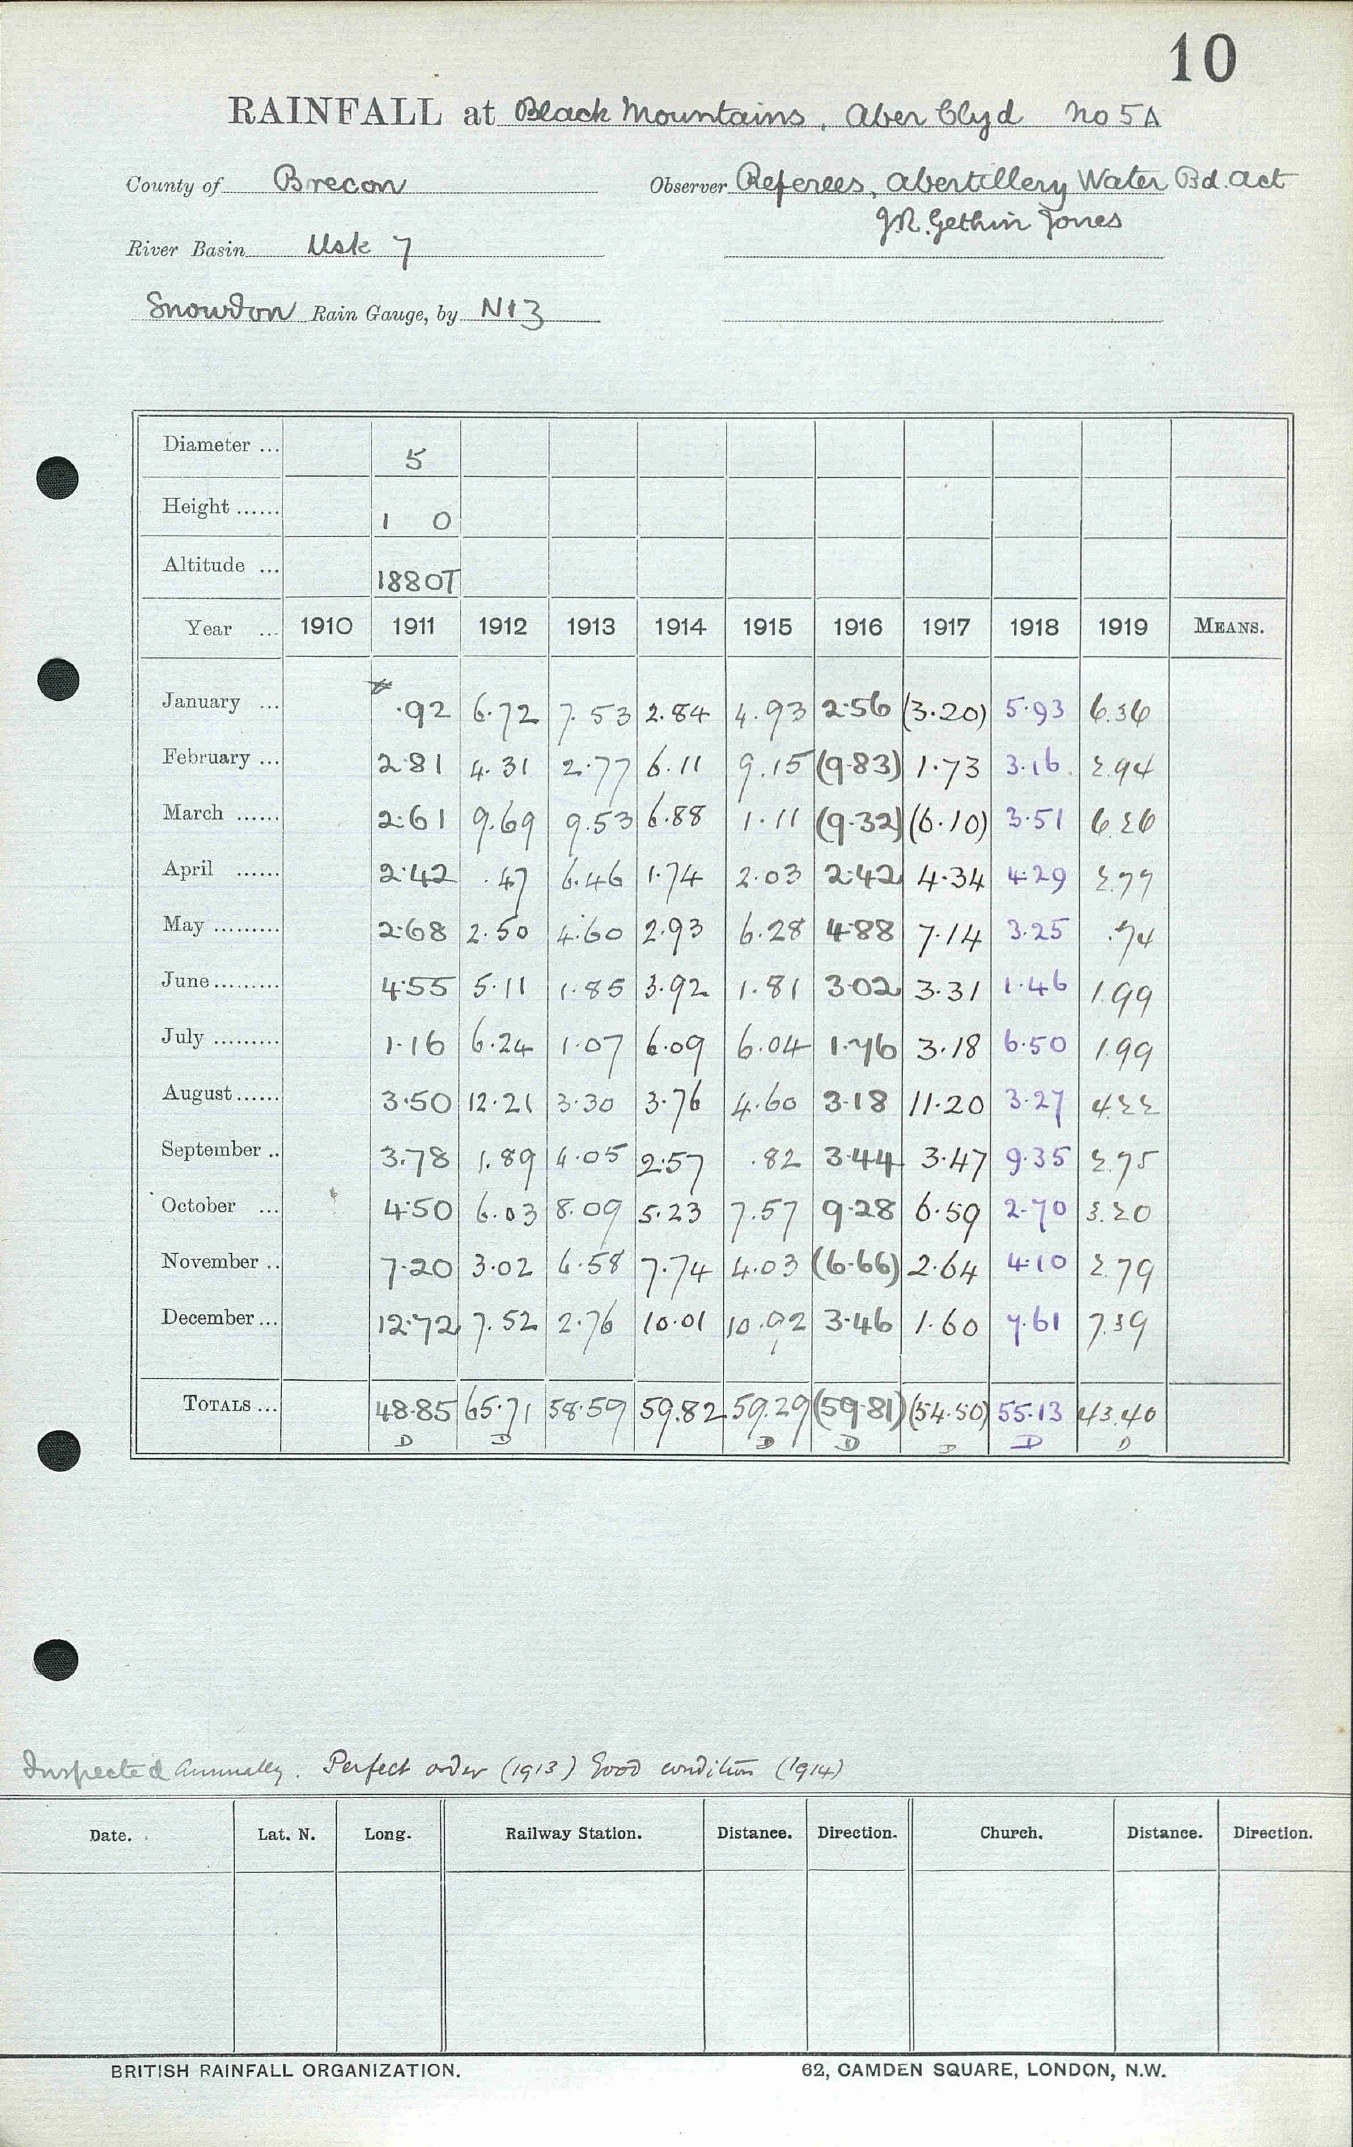 10
RAINFALL at Black Mountains, Aber Clyd No 5A
County of Brecon Observer Referees, Abertillery Water Bd. Act
J.R. Gethin Jones
River Basin Usk 7
Snowdon Rain Gauge, by N13
Diameter ... 5
Height ...... 1 0
Altitude ... 1880T
Year ... 1910 1911 1912 1913 1914 1915 1916 1917 1918 1919 MEANS.
January ... .92 6.72 7.53 2.84 4.93 2.56 (3.20) 5.93 6.36
February ... 2.81 4.31 2.77 6.11 9.15 (9.83) 1.73 3.16 2.94
March ...... 2.61 9.69 9.53 6.88 1.11 (9.32) (6.10) 3.51 6.26
April ...... 2.42 .47 6.46 1.74 2.03 2.42 4.34 4.29 2.77
May ......... 2.68 2.50 4.60 2.93 6.28 4.88 7.14 3.25 .74
June......... 4.55 5.11 1.85 3.92 1.81 3.02 3.31 1.46 1.99
July ......... 1.16 6.24 1.07 6.09 6.04 1.76 3.18 6.50 1.99
August...... 3.50 12.21 3.30 3.76 4.60 3.18 11.20 3.27 4.22
September .. 3.78 1.89 4.05 2.57 .82 3.44 3.47 9.35 2.75
October ... 4.50 6.03 8.09 5.23 7.57 9.28 6.59 2.70 3.20
November .. 7.20 3.02 6.58 7.74 4.03 (6.66) 2.64 4.10 2.79
December ... 12.72 7.52 2.76 10.01 10.92 3.46 1.60 7.61 7.39
TOTALS ... 48.85 65.71 58.59 59.82 59.29 (59.81) (54.50) 55.13 43.40
D D D D D D D
Inspected annually. Perfect order (1913) Good condition (1914)
Date. Lat. N. Long. Railway Station. Distance. Direction. Church. Distance. Direction.
BRITISH RAINFALL ORGANIZATION. 62, CAMDEN SQUARE, LONDON, N.W.